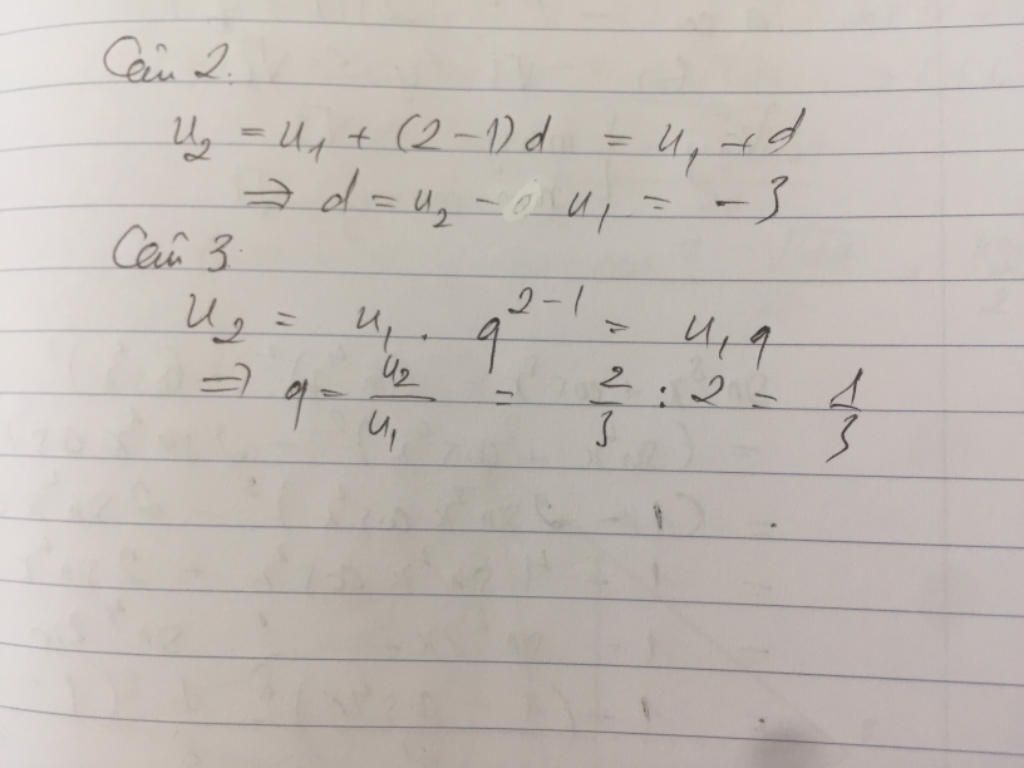 Câu 2.
u₂ = u₁ + (2-1)d = u₁ + d
⇒ d = u₂ - u₁ = -3
Câu 3.
u₂ = u₁ . q²⁻¹ = u₁q
⇒ q = u₂/u₁ = 2/3 : 2 = 1/3